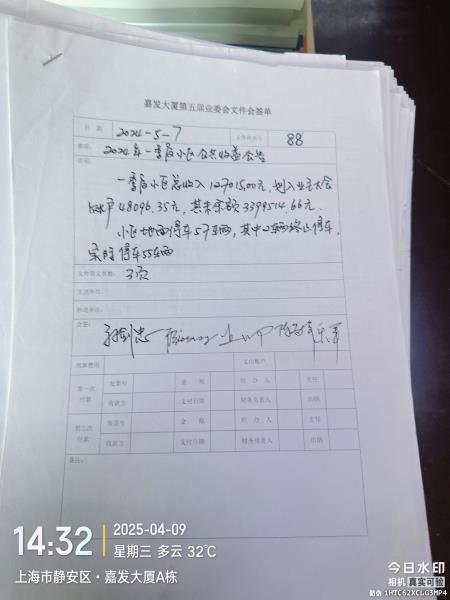 嘉发大厦第五届业委会文件会签单
日 期 2024-5-7 文件流水号 88
事项: 2024年一季度小区公共收益公告
说明:
一季度小区总收入127015.00元,划入业主大会
账户48096.35元,其末余额3399514.66元.
小区地面停车57车辆,其中2车辆终止停车,
实际停车55车辆
文件原文页数: 3页
发送单位:
抄送单位:
会签:
预算费用 支出账户
第一次付款 发票号 金 额 经 办 人 主任
收款方 支付日期 财务负责人 出纳
第二次付款 发票号 金 额 经 办 人 主任
收款方 支付日期 财务负责人 出纳
备注:
14:32 2025-04-09
星期三 多云 32℃
上海市静安区·嘉发大厦A栋
今日水印
相机 真实可验
防伪 1HTC62XCLG3MP4